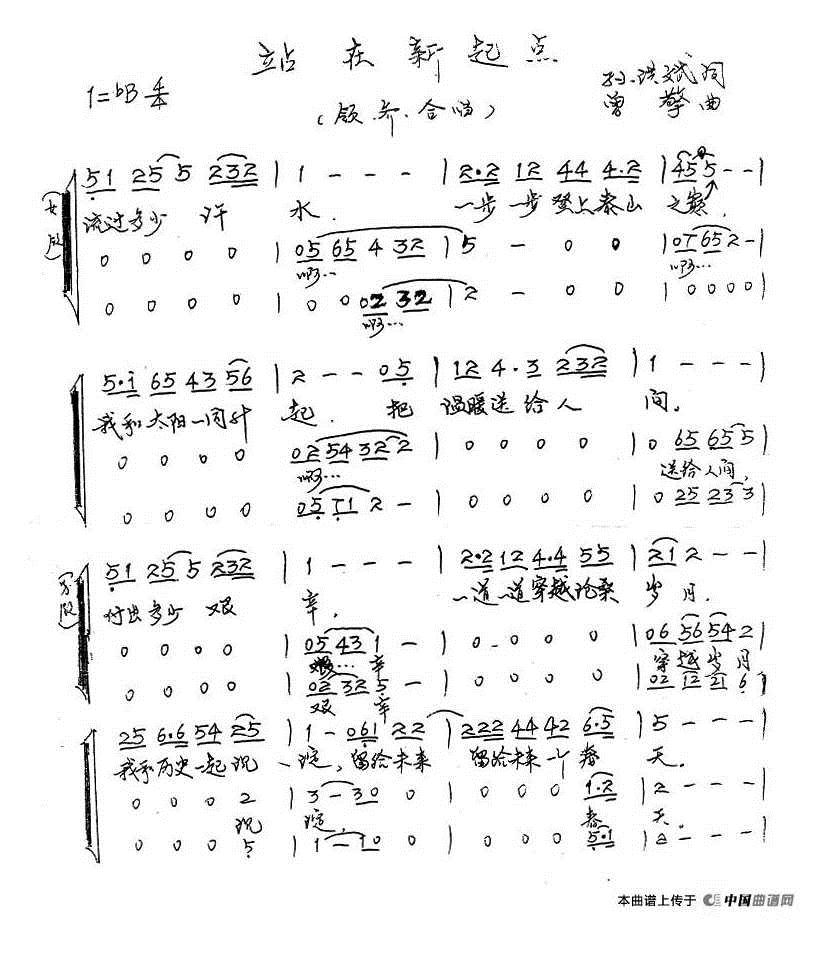 站在新起点
1=bB 4/4
孙洪斌词
(领齐、合唱)
曾擎曲
5 1 2 5 5 2 3 2 | 1 - - - | 2·2 1 2 4 4 4·2 | 4 5 5 - - |
流过多少汗水. 一步一步登上泰山之巅.
0 0 0 0 | 0 5 6 5 4 3 2 | 5 - 0 0 | 0 7 6 5 2 - |
啊… 啊…
0 0 0 0 | 0 0 0 2 3 2 | 2 - 0 0 | 0 0 0 0 |
啊…
5·i 6 5 4 3 5 6 | 2 - - 0 5 | 1 2 4·3 2 3 2 | 1 - - - |
我和太阳一同升起. 把温暖送给人间。
0 0 0 0 | 0 2 5 4 3 2 2 | 0 0 0 0 | 0 6 5 6 5 5 |
啊… 送给人间,
0 0 0 0 | 0 5 7 1 2 - | 0 0 0 0 | 0 2 5 2 3 3 |
5 1 2 5 5 2 3 2 | 1 - - - | 2·2 1 2 4·4 5 5 | 2 1 2 - - |
付出多少艰辛. 一道一道穿越沧桑岁月.
0 0 0 0 | 0 5 4 3 1 - | 0 0 0 0 | 0 6 5 6 5 4 2 |
艰…辛 穿越岁月
0 0 0 0 | 0 2 3 2 5 - | 0 0 0 0 | 0 2 1 2 2 1 6 |
艰 辛
2 5 6·6 5 4 2 5 | 1 - 0 6 1 2 2 | 2 2 2 4 4 4 2 6·5 | 5 - - -
我和历史一起沉淀, 留给未来 留给未来一个春天.
0 0 0 2 | 3 - 3 0 0 | 0 0 0 1·2 | 2 - - -
沉淀, 春天。
0 0 0 5 | 1 - 1 0 0 | 0 0 0 5·1 | 2 - - -
本曲谱上传于 中国曲谱网